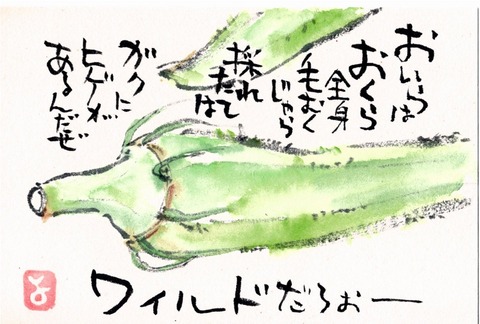 おいらは
おくら
全身
毛むく
じゃら
採れ
たては
ガクに
ヒゲが
あるんだぜ
ワイルドだろぉー